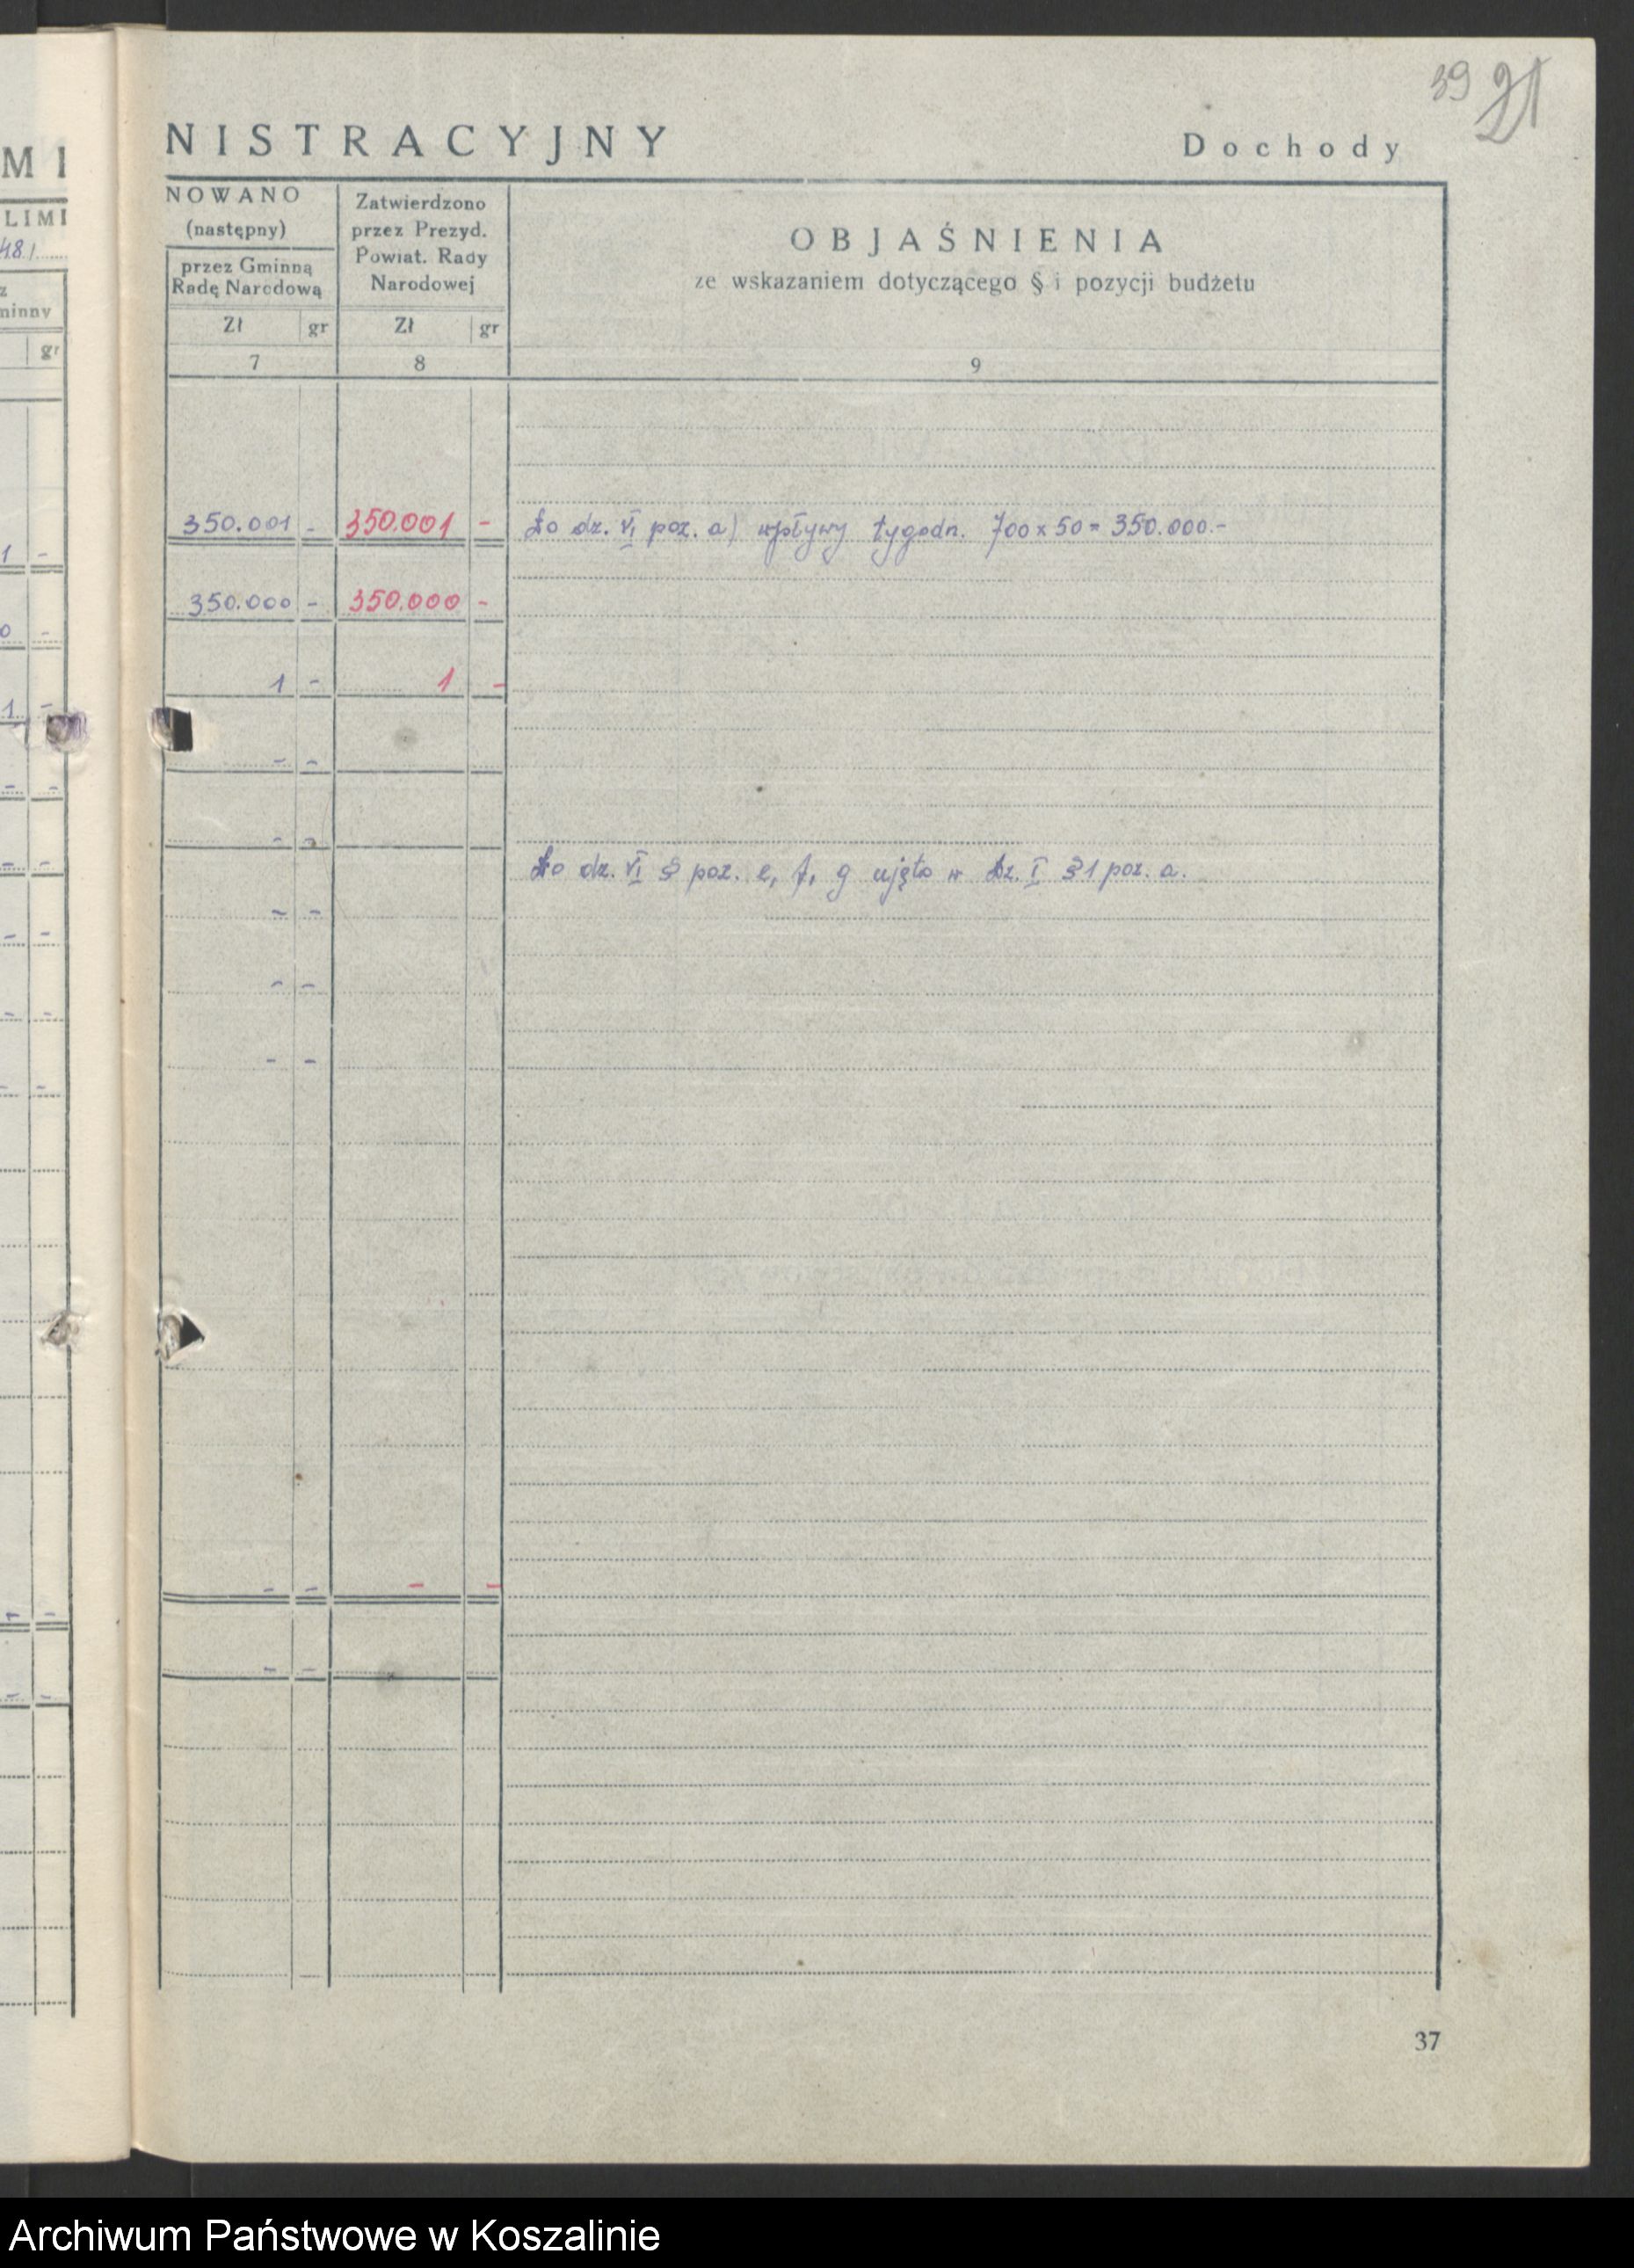 39 21
NISTRACYJNY Dochody
M I
LIMI
48/
z
minny
gr
NOWANO
(następny)
przez Gminną
Radę Narodową
Zł gr
7
Zatwierdzono
przez Prezyd.
Powiat. Rady
Narodowej
Zł gr
8
OBJAŚNIENIA
ze wskazaniem dotyczącego § i pozycji budżetu
9
350.001 - 350.001 - Do dz. VI poz. a) wpływy tygodn. 700 x 50 = 350.000.-
1 -
350.000 - 350.000 -
0 -
1 - 1 -
1 -
- -
- -
- -
- -
Do dz. VI § poz. e, f, g ujęto w Dz. I § 1 poz. a.
- -
- -
- -
- -
- -
- -
- - - -
- -
- -
- -
37
Archiwum Państwowe w Koszalinie